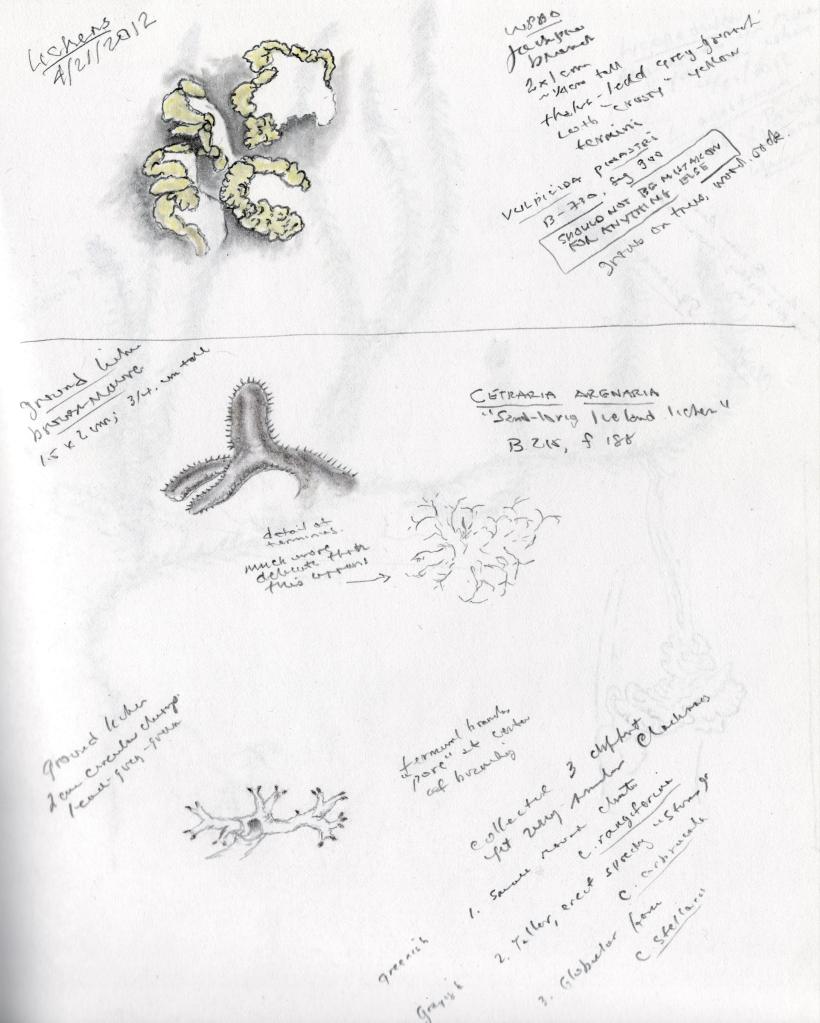 Lichens
4/21/2012
branch
2x1 cm
~1/4 cm tall
with "crusty" yellow
termini
VULPICIDA PINASTRI
B-730, fig 900
SHOULD NOT BE MISTAKEN
FOR ANYTHING ELSE
grows on trees, wood, rock.
ground lichen
brown-mauve
1.5 x 2 cm; 3/4 cm tall
CETRARIA ARENARIA
Iceland lichen"
B 215, f 188
detail at
terminus.
much more
delicate than
this appears
ground lichen
2 cm circular clumps
lead-grey-green
terminal branches
"pore" at center
of branching
collected 3 different
yet very similar Cladinas
1. small round
C. rangiferina
2. Taller, erect
C. arbuscula
3. Globular form
C. stellaris
greenish
Greyish